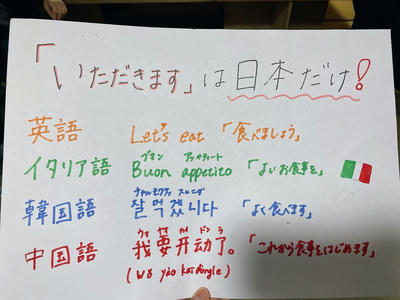 「いただきます」は日本だけ!
英語 Let's eat 「食べましょう」
ブオン アッペティート
イタリア語 Buon appetito 「よいお食事を」
チャルモクケッスムニダ
韓国語 잘 먹겠니다 「よく食べます」
ウォ ヤオ カイ ドン ラ
中国語 我要开动了。 「これから食事をはじめます」
(wǒ yào kāi dòngle)